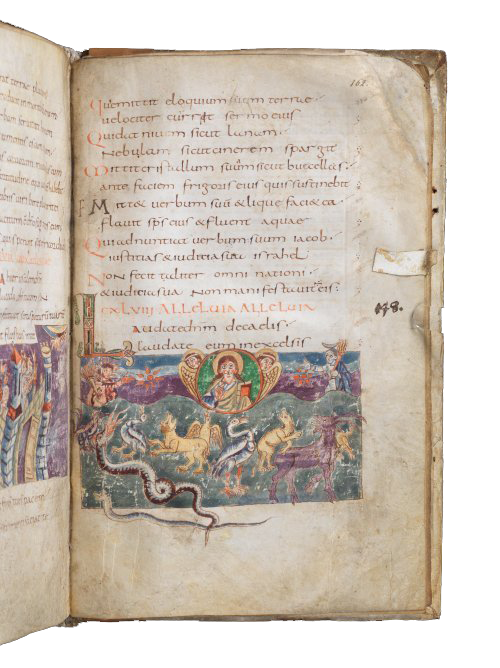 162
Qui emittit eloquium suum terrae
velociter currit sermo eius
Qui dat nivem sicut lanam
Nebulam sicut cinerem spargit
Mittit cristallum suum sicut buccellas
ante faciem frigoris eius quis sustinebit
EMitt& verbum suū & liquefaci& ea
flavit sp̄s eius & fluent aquae
Qui adnuntiat verbum suum iacob
iustitias & iudicia sua israhel
Non fecit taliter omni nationi
& iudicia sua non manifestavit eis
CXLVIII ALLELUIA ALLELUIA
Laudate dnm de caelis
laudate eum in excelsis
148.